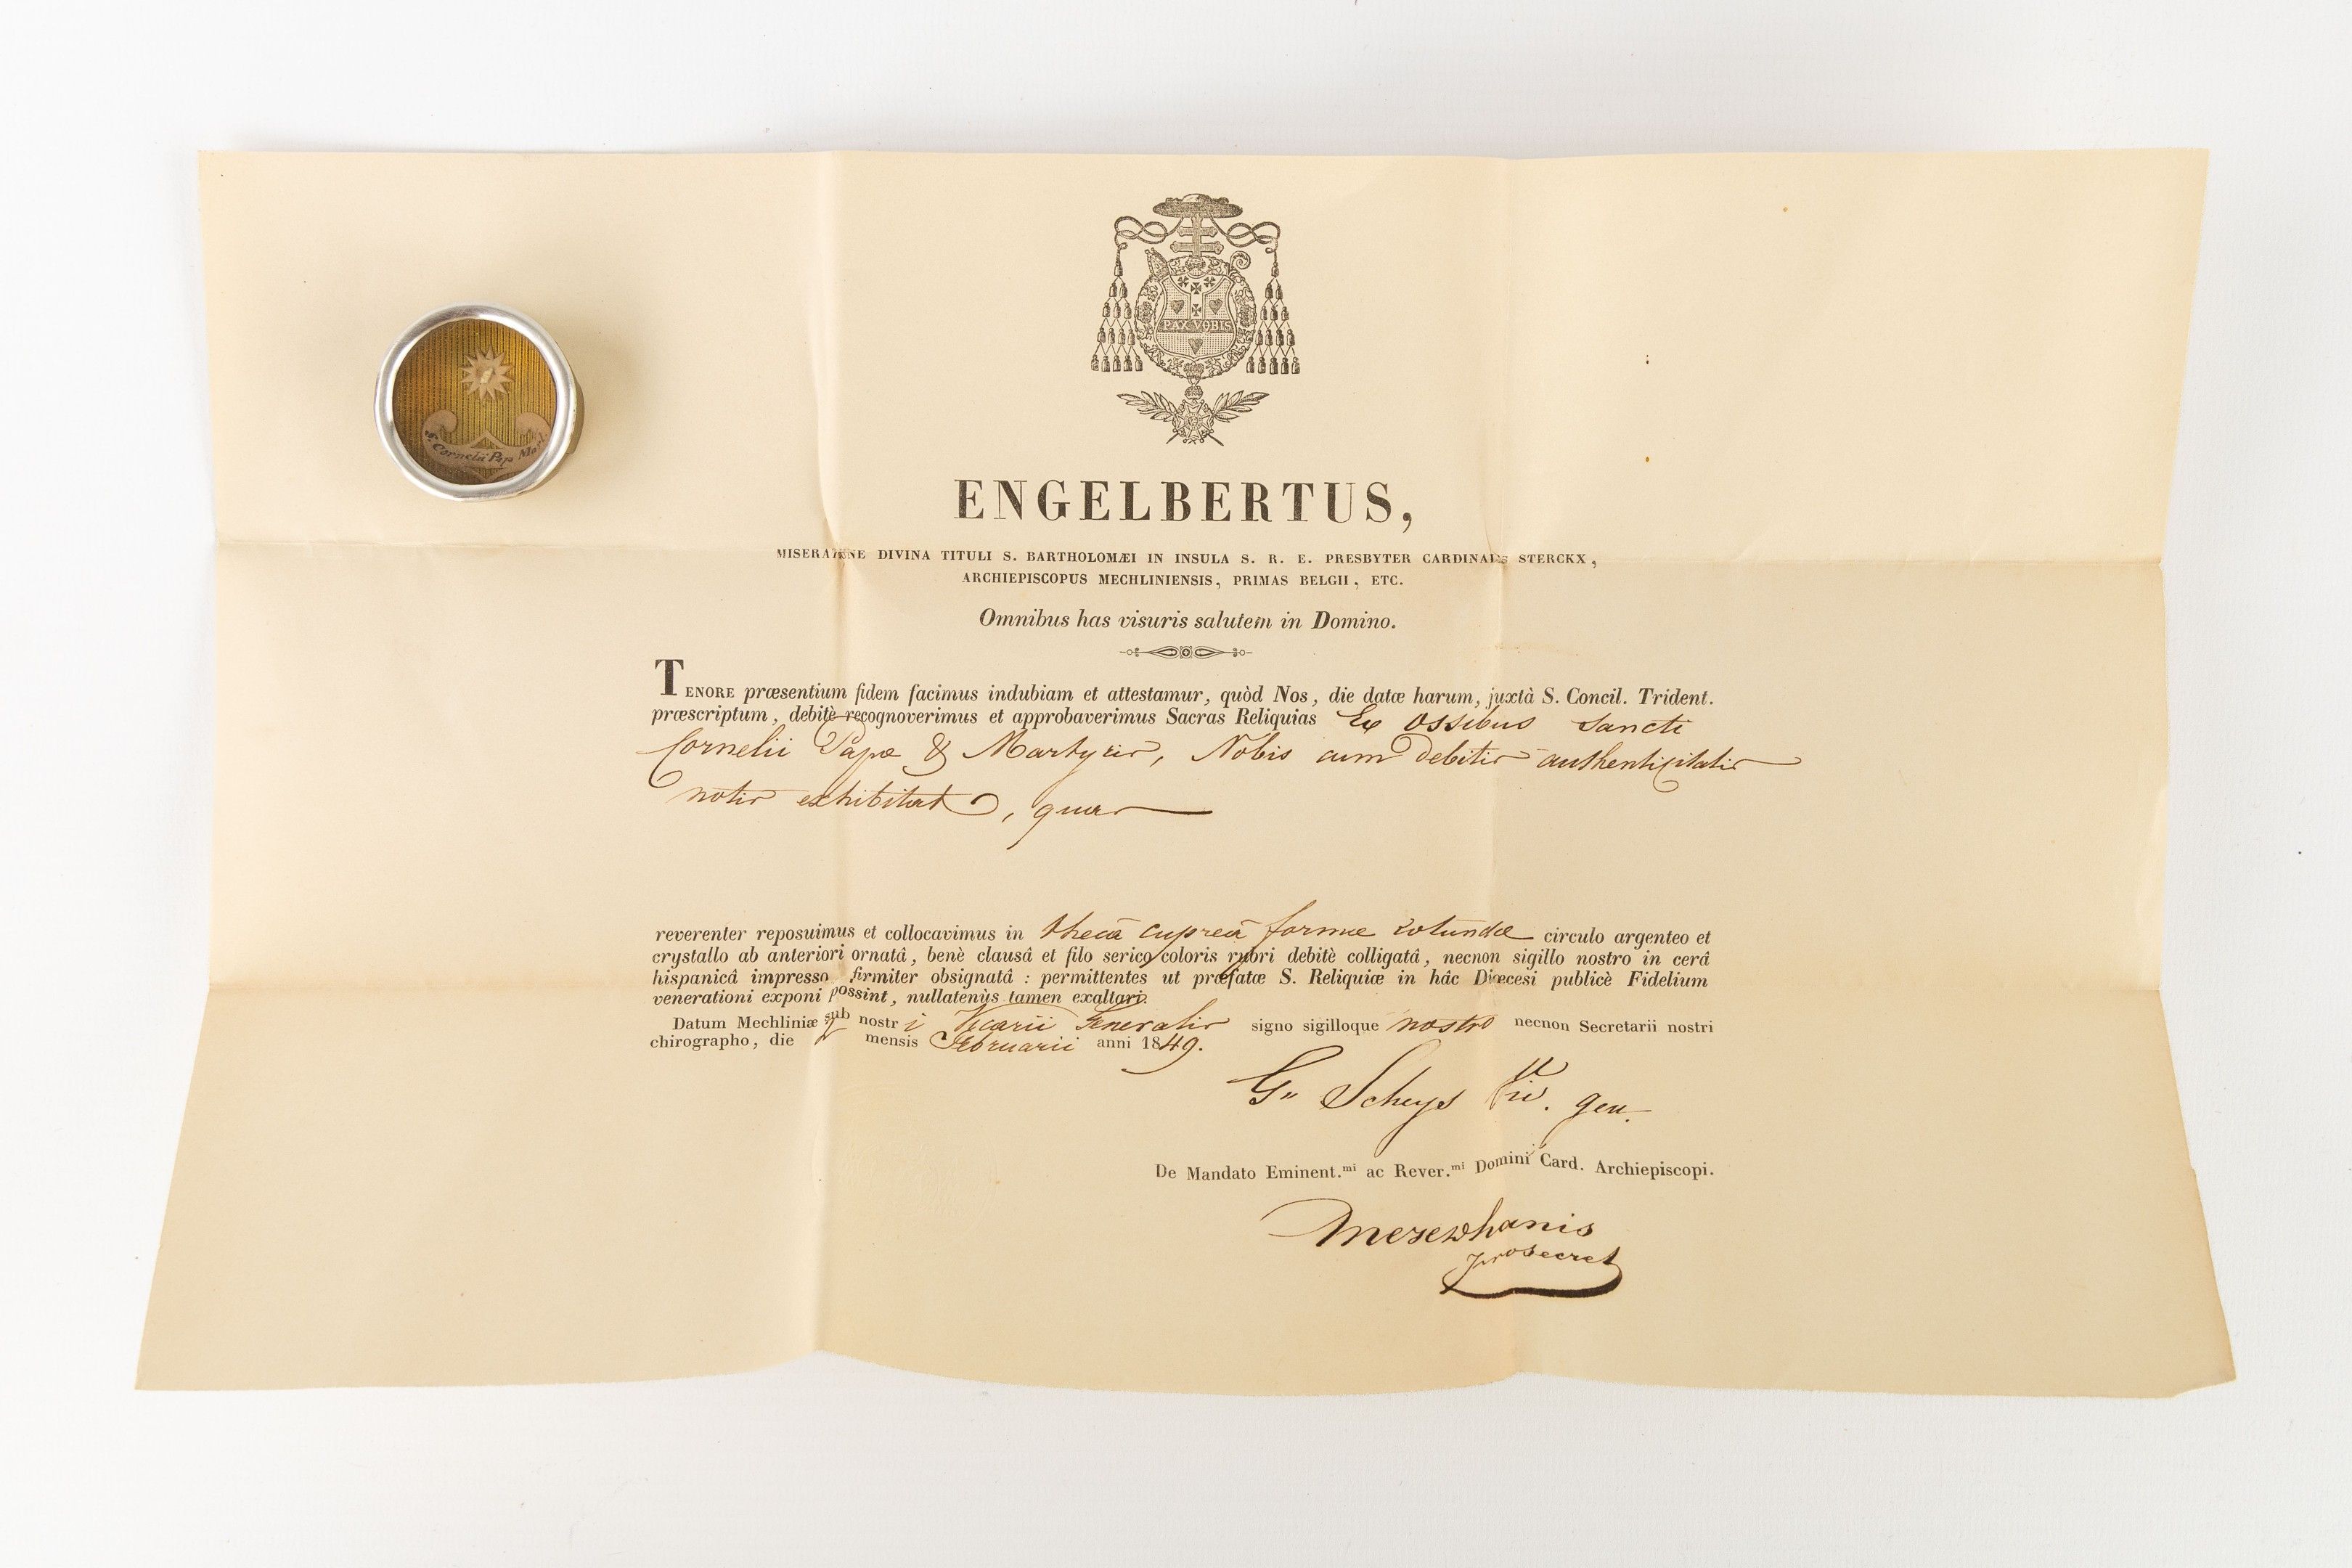 PAX VOBIS
S. Cornelii Pap Mart.
ENGELBERTUS,
MISERATIONE DIVINA TITULI S. BARTHOLOMÆI IN INSULA S. R. E. PRESBYTER CARDINALIS STERCKX,
ARCHIEPISCOPUS MECHLINIENSIS, PRIMAS BELGII, ETC.
Omnibus has visuris salutem in Domino.
TENORE præsentium fidem facimus indubiam et attestamur, quòd Nos, die datæ harum, juxtà S. Concil. Trident.
præscriptum, debitè recognoverimus et approbaverimus Sacras Reliquias Ex Ossibus Sancti
Cornelii Papæ & Martyris, Nobis cum debitis authenticitatis
notis exhibitas, quas
reverenter reposuimus et collocavimus in thecâ cupreâ formæ rotundæ circulo argenteo et
crystallo ab anteriori ornatâ, benè clausâ et filo serico coloris rubri debitè colligatâ, necnon sigillo nostro in cerâ
hispanicâ impresso firmiter obsignatâ : permittentes ut præfatæ S. Reliquiæ in hâc Diœcesi publicè Fidelium
venerationi exponi possint, nullatenùs tamen exaltari.
Datum Mechliniæ sub nostri Vicarii Generalis signo sigilloque nostro necnon Secretarii nostri
chirographo, die mensis Februarii anni 1849.
G. Scheys Vic. gen.
De Mandato Eminent.mi ac Rever.mi Domini Card. Archiepiscopi.
prosecret